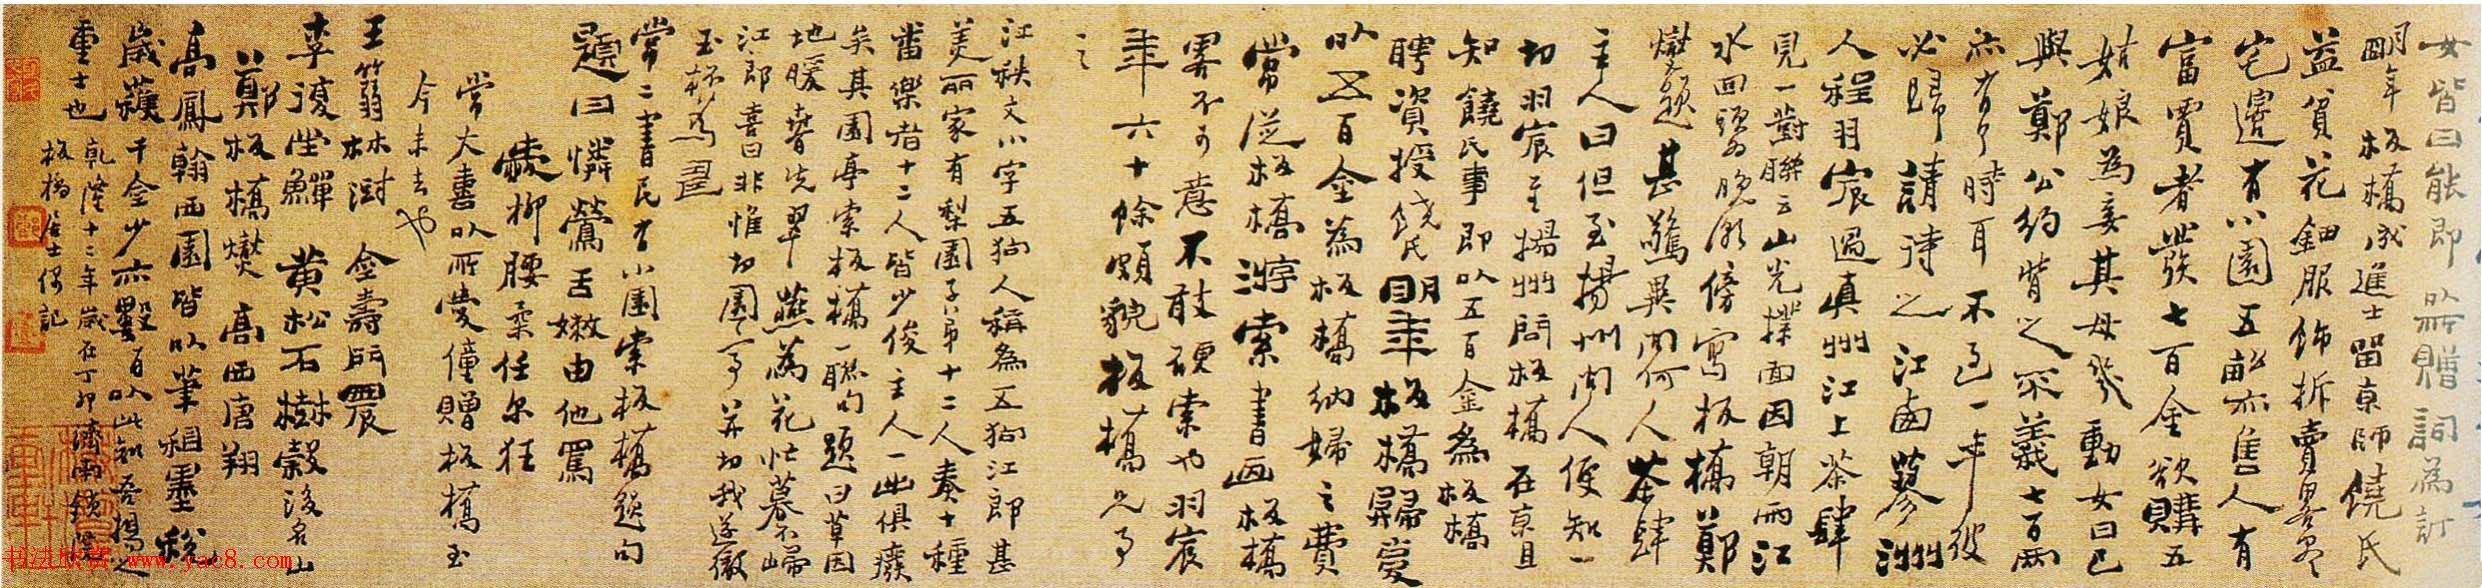 女皆曰能即以所贈詞為訂
明年板橋成進士留京師饒氏
益貧花鈿服飾拆賣畧盡
宅邊有小園五畝亦售人有
富賈者發七百金欲購五
姑娘為妾其母幾動女曰已
與鄭公約背之不義七百兩
亦有了時耳不過一年彼
必歸請待之江西蓼洲
人程羽宸過真州江上茶肆
見一對聯云山光撲面因朝雨江
水回頭為晚潮傍寫板橋鄭
燮題甚驚異問何人茶肆
主人曰但至揚州問人便知一
切羽宸至揚州問板橋在京且
知饒氏事即以五百金為板橋
聘資授饒氏明年板橋歸復
以五百金為板橋納婦之費
常從板橋游索書画板橋
畧不可意不敢硬索也羽宸
年六十餘頗貌板橋兄事
之
江秩文小字五狗人稱為五狗江郎甚
美麗家有梨園子弟十二人奏十種
番樂者十二人皆少俊主人一出俱廢
矣其園亭索板橋一聯句題曰草因
地暖春先翠燕為花忙暮不歸
江郎喜曰非惟切園亭并切我遂徹
玉杯為壽
常二書民有小園索板橋題句
題曰憐鶯舌嫩由他罵
愛柳腰柔任尔狂
常大喜以所愛僮贈板橋至
今未去也
王箬林澍 金壽門農
李復堂鱓 黄松石樹榖後名山
鄭板橋燮 高西唐翔
高鳳翰西園皆以筆租墨稅
歲獲千金少亦數百以此知吾揚之
重士也
乾隆十二年歲在丁卯濟南鎖院
板橋居士偶記
书法欣赏 www.yac8.com